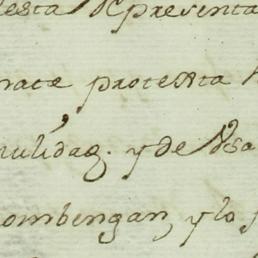 esta Representa
rate protexta
nulidad. y de Usa
ombengan, y lo